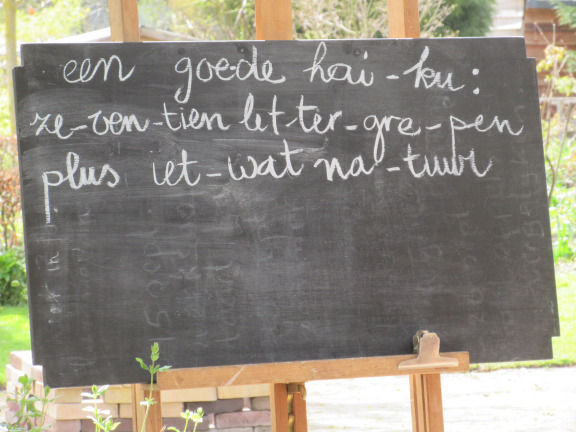 een goe-de hai-ku:
ze-ven-tien let-ter-gre-pen
plus iet-wat na-tuur